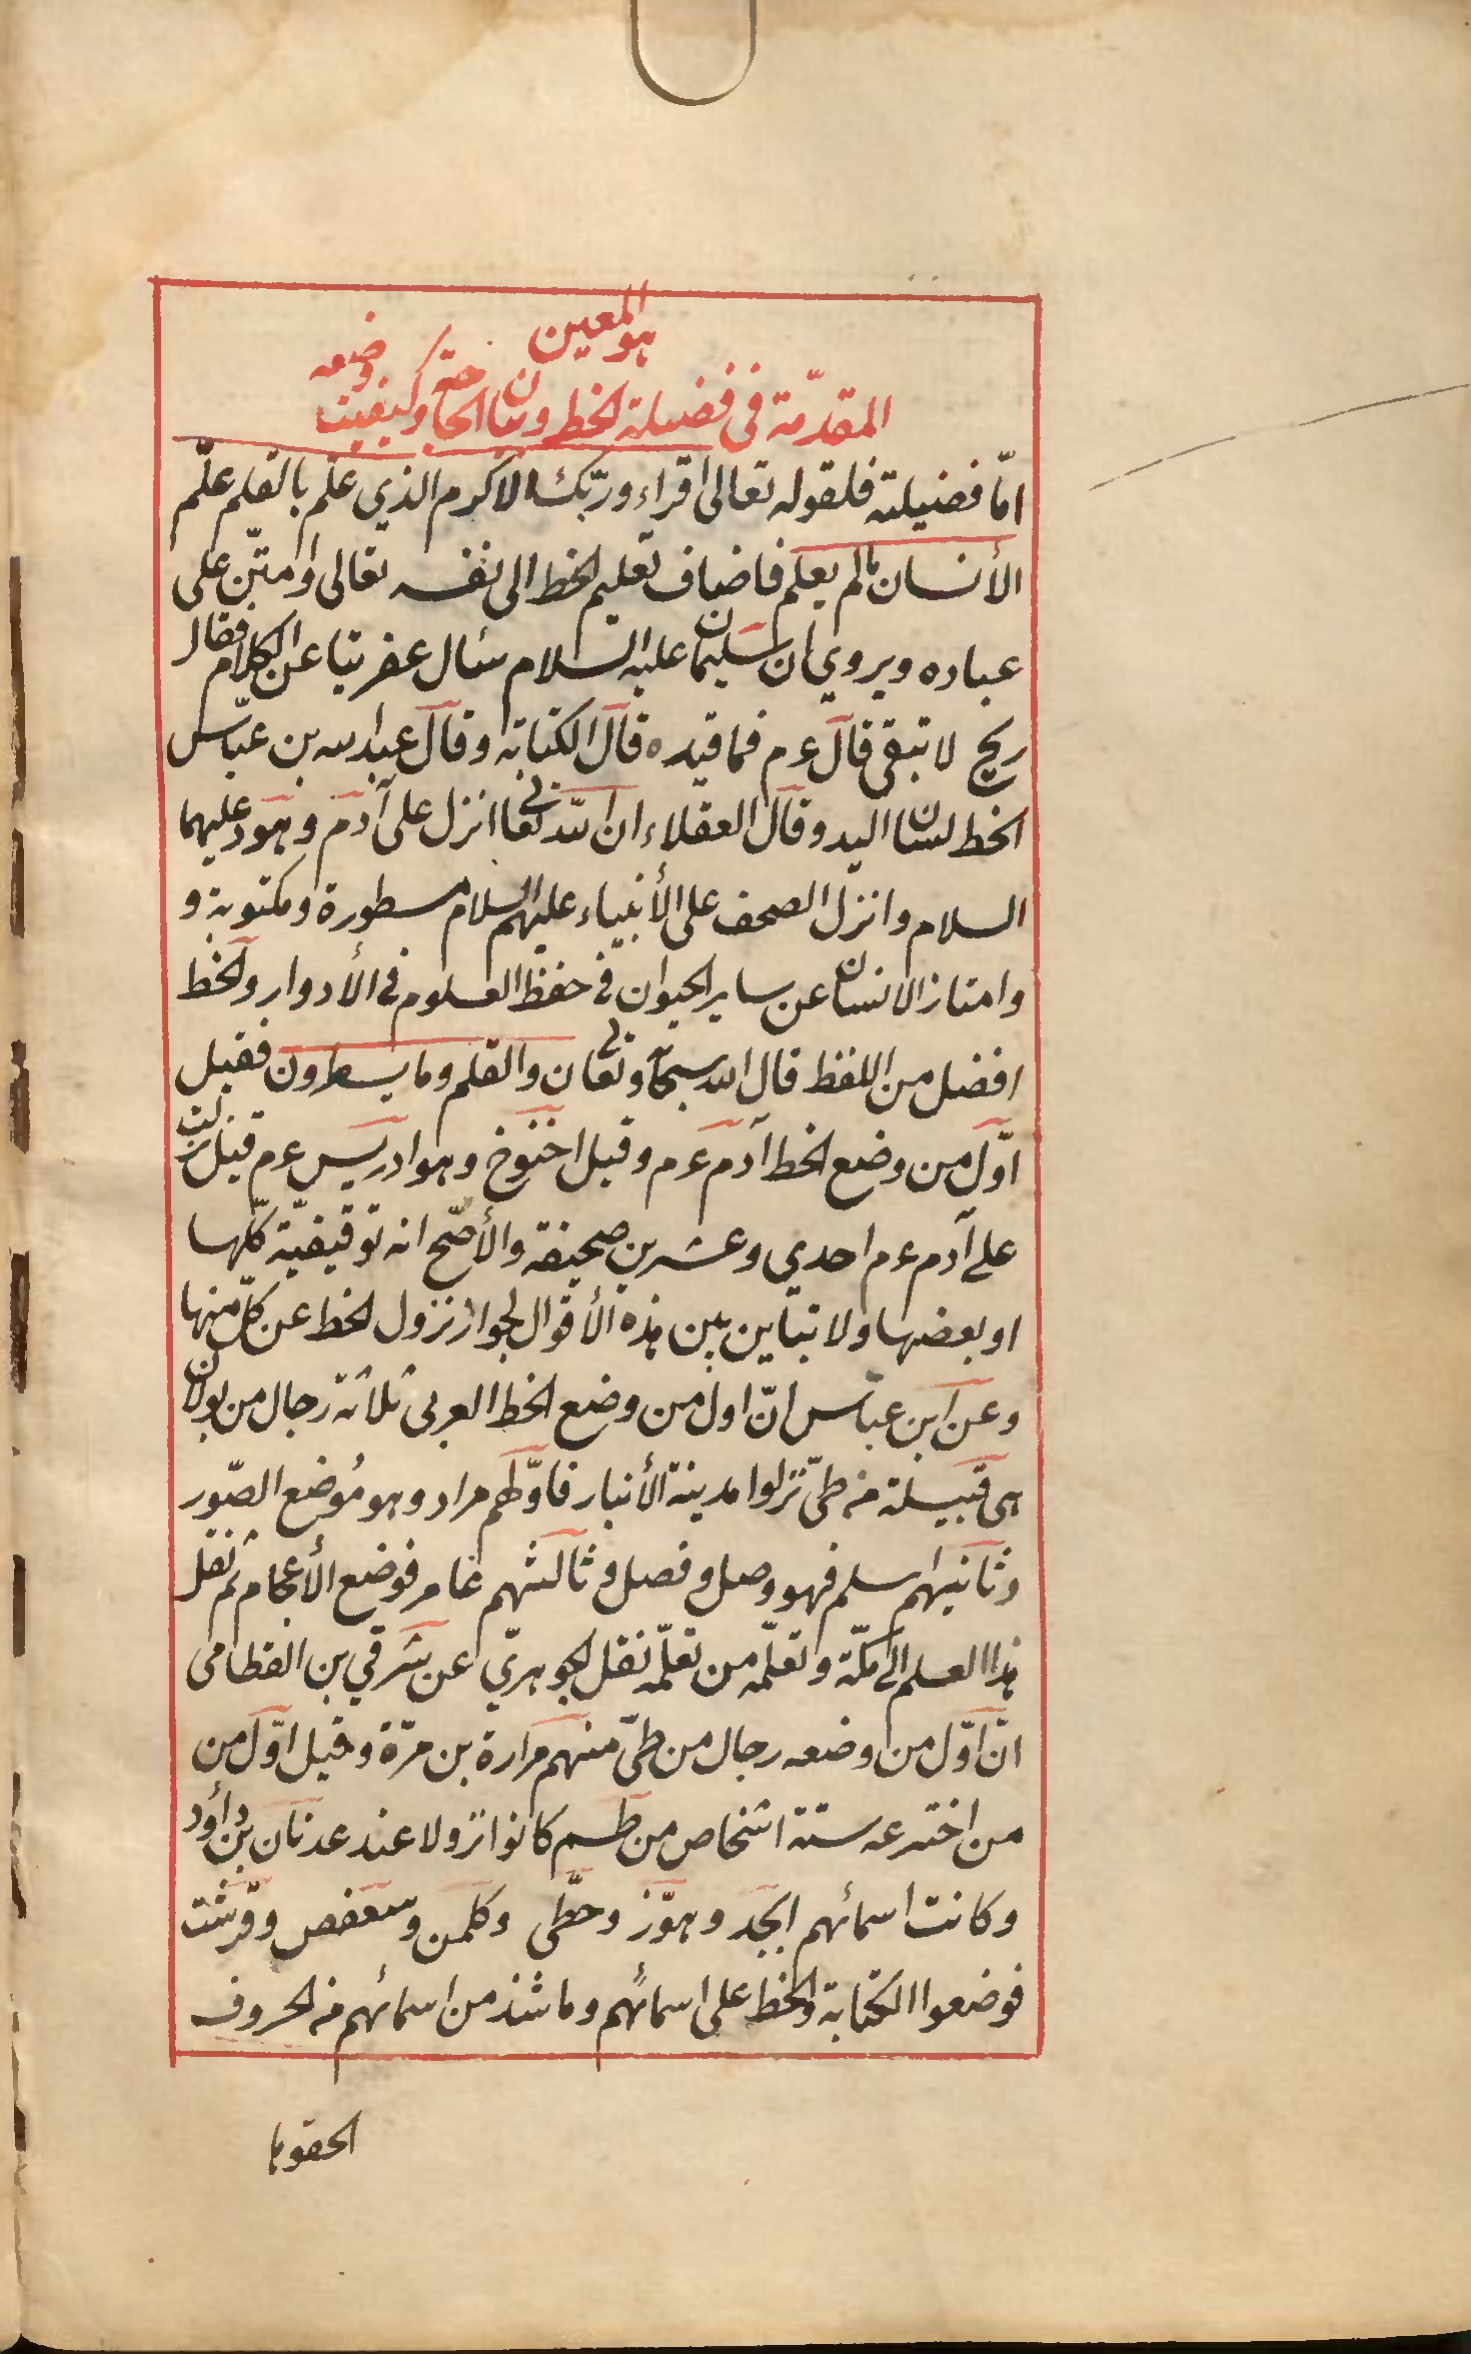 هو المعين
المقدّمة فى فضيلة الخط وبيان الحاجة وكيفية وضعه
امّا فضيلته فلقوله تعالى اقراء وربّك الاكرم الذي علّم بالقلم علّم
الأنسان مالم يعلم فاضاف تعليم الخط الى نفسه تعالى وامتنّ على
عباده ويروي ان سليمان عليه السلام سئال عفريتا عن الكلام فقال
ريح لا تبقى قال عم فما قيده قال الكتابة وقال عبد الله بن عبّاس
الخط لسان اليد وقال العقلاء ان الله تعالى انزل على آدم وهود عليهما
السلام وانزل الصحف على الأنبياء عليهم السلام مسطورة ومكتوبة و
وامتاز الانسان عن ساير الحيوان فى حفظ العلوم فى الأدوار والخط
افضل من اللفظ قال الله سبحانه وتعالى ن والقلم وما يسطرون فقيل
اوّل من وضع الخط آدم عم وقيل اخنوخ وهو ادريس عم قيل نزلت
على آدم عم احدي وعشرين صحيفة والأصّح انه توقيفيّة كلّها
او بعضها ولا تباين بين هذه الأقوال لجواز نزول الخط عن كلّ منها
وعن ابن عباس انّ اول من وضع الخط العربى ثلاثة رجال من بولان
هى قبيلة من طىّ نزلوا مدينة الأنبار فاوّلهم مراد وهو مُوضع الصّور
وثانيهم اسلم فهو وصل وفصل وثالثهم عامر فوضع الأعجام ثم نقل
هذا العلم الى مكّة وتعلّمه من تعلّمه نقل الجوهريّ عن شرقي بن القطامى
انّ اوّل من وضعه رجال من طىّ منهم مرارة بن مرّة وقيل اوّل من
من اخترعه ستة اشخاص من طسم كانوا نزولا عند عدنان بن أود
وكانت اسمائهم ابجد وهوّز وحطّى وكلمن وسعفص وقرشت
فوضعوا الكتابة والخط على اسمائهم وما شذ من اسمائهم من الحروف
الحقوها